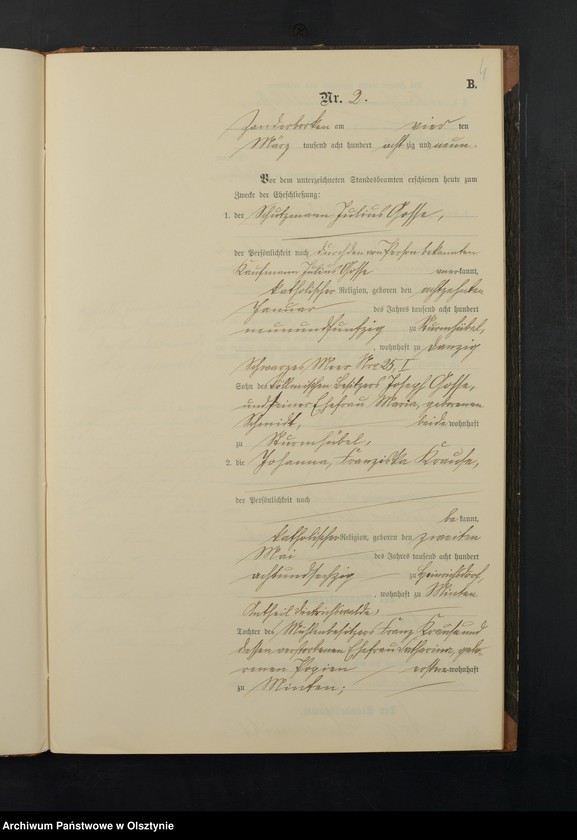 4
B.
Nr. 2.
am vier ten
März tausend acht hundert achtzig und neun.
Vor dem unterzeichneten Standesbeamten erschienen heute zum
Zwecke der Eheschließung:
1. der Schutzmann Julius Gosse,
der Persönlichkeit nach durch den von Person bekannten
Kaufmann Julius Gosse anerkannt,
katholischer Religion, geboren den achtzehnten
Januar des Jahres tausend acht hundert
neunundfünfzig zu Sturmhübel,
, wohnhaft zu Danzig
Schwarzes Meer Nro 25, I
Sohn des köllmischen Besitzers Joseph Gosse,
und seiner Ehefrau Maria, geborenen
Schmidt, beide wohnhaft
zu Sturmhübel,
2. die Johanna, Franziska Krause,
der Persönlichkeit nach
be kannt,
katholischer Religion, geboren den zweiten
Mai des Jahres tausend acht hundert
achtundsechzig zu Heinrichsdorf,
, wohnhaft zu Minten
Antheil
Tochter des Mühlenbesitzers Franz Krause und
dessen verstorbenen Ehefrau Catharina, gebo-
renen ersterer wohnhaft
zu Minten;
Archiwum Państwowe w Olsztynie